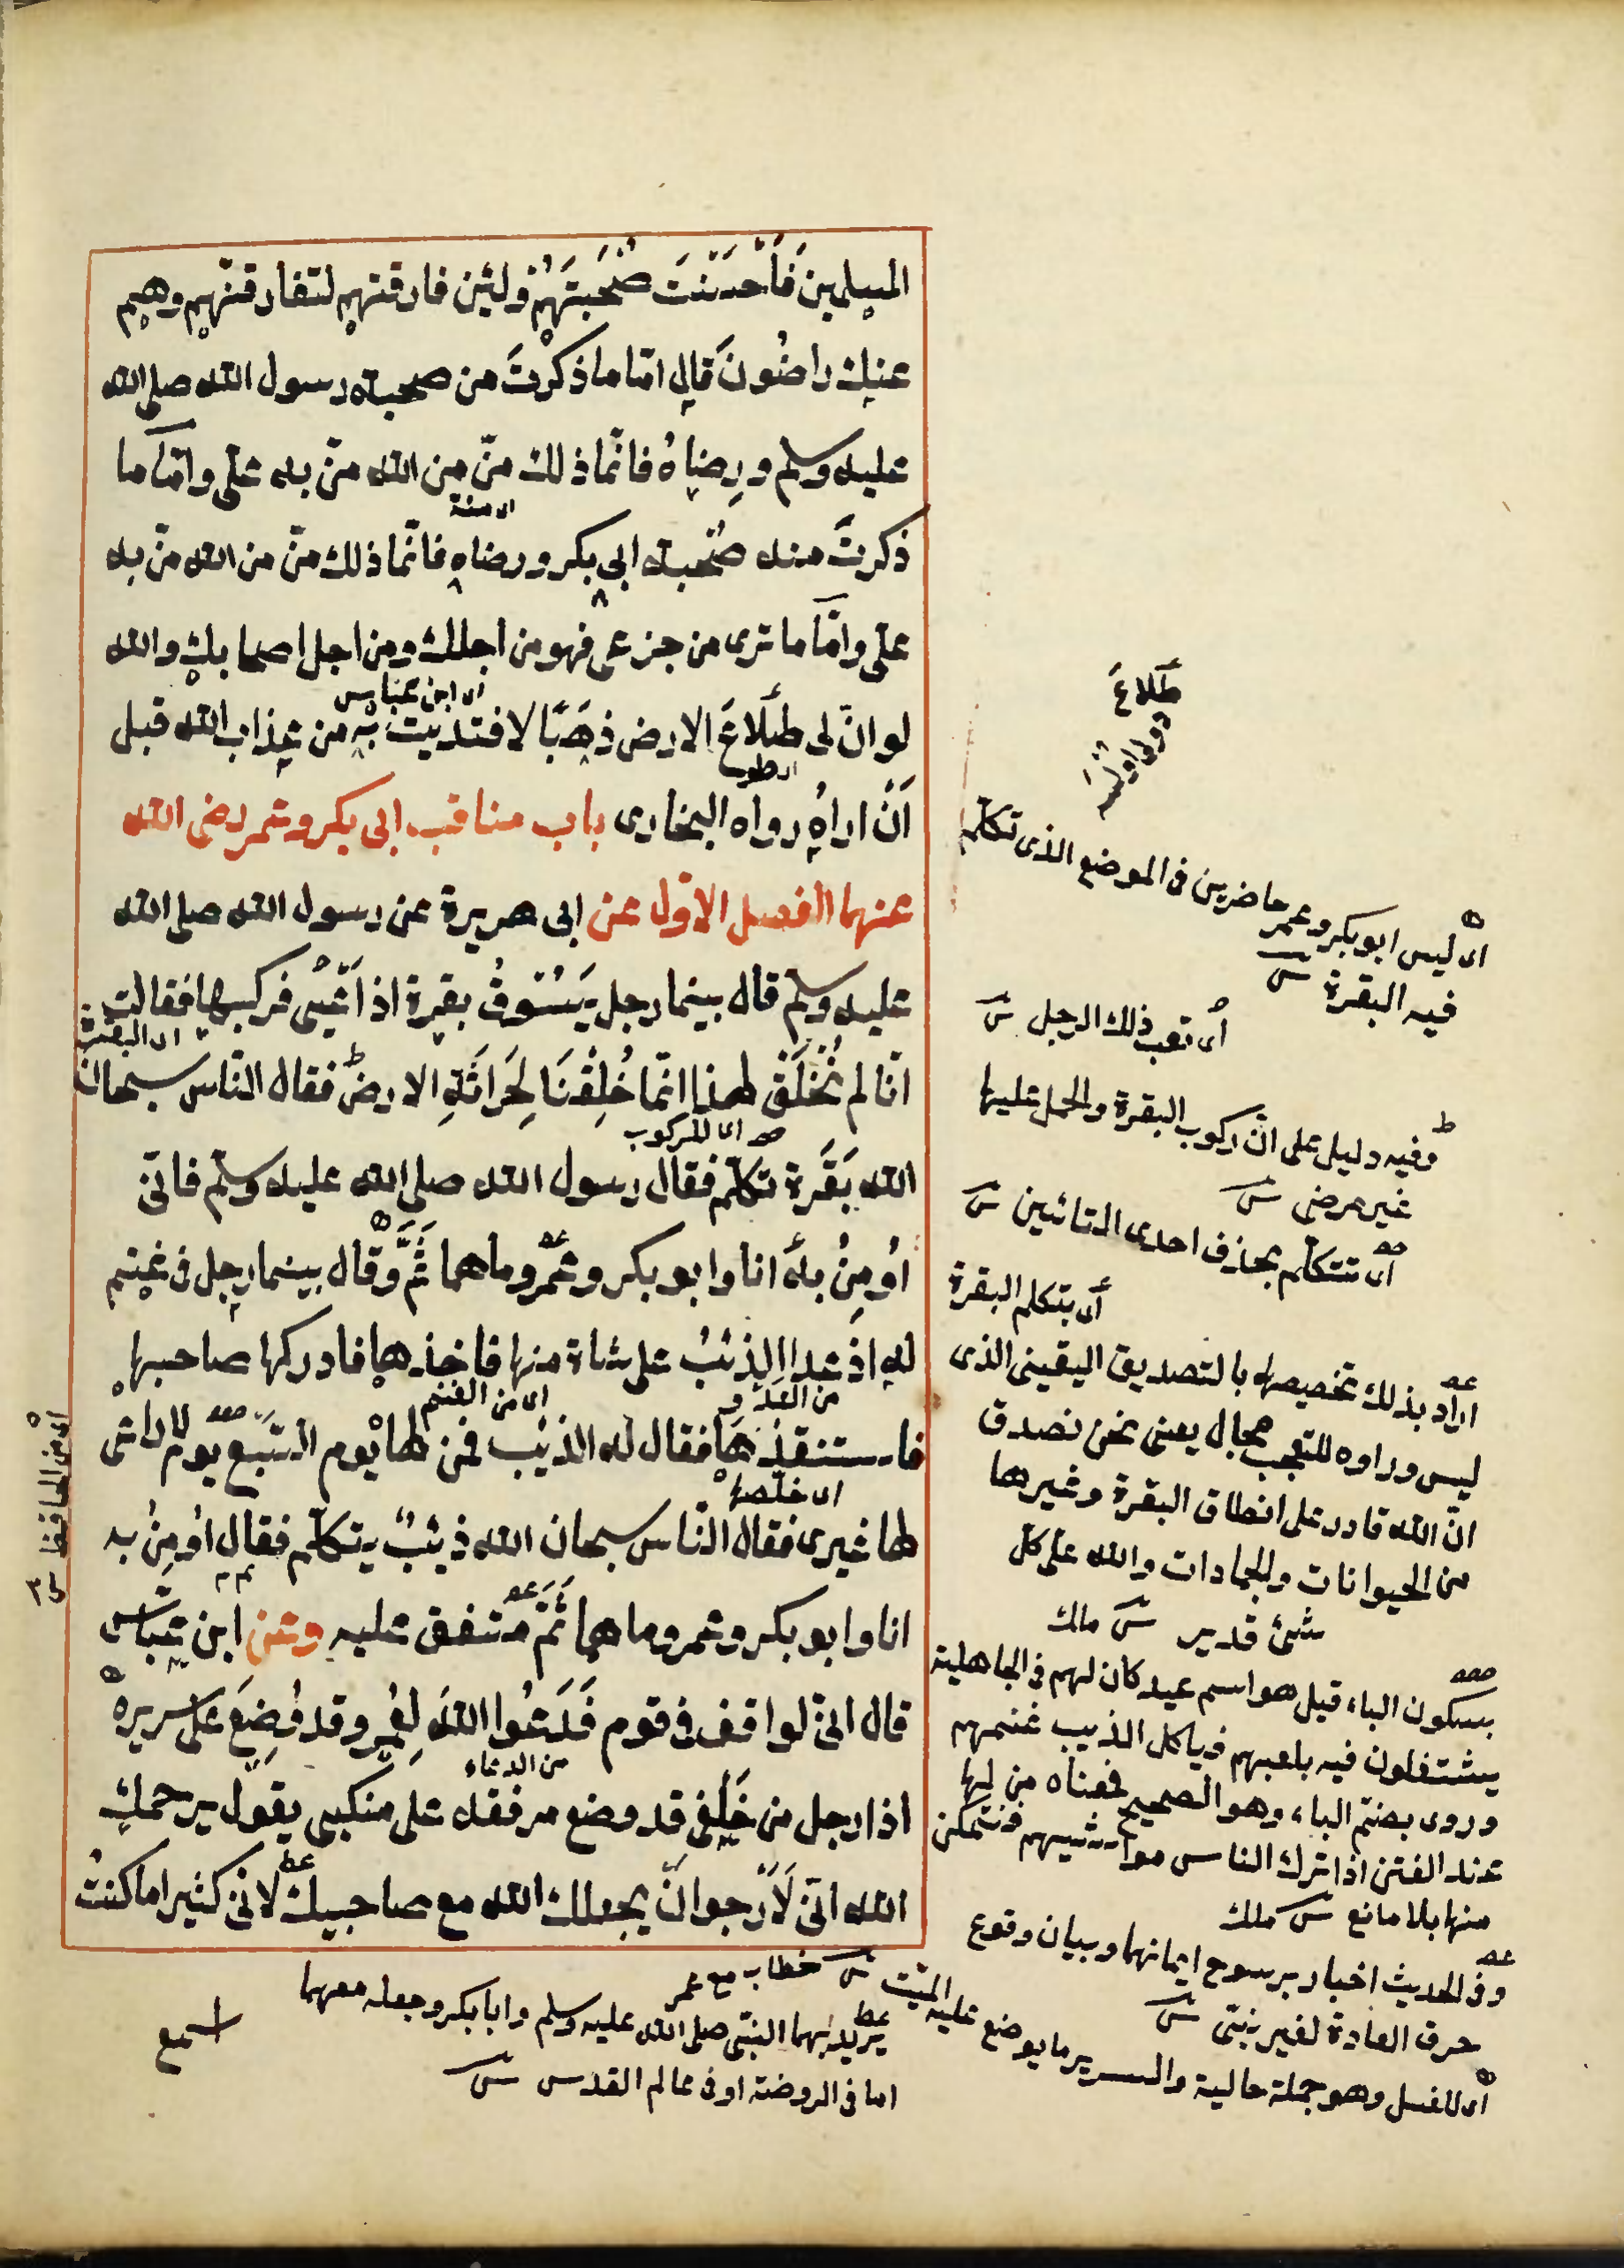 المسلمين فَاَحْسَنْتَ صُحْبَتَهُمْ ولئن فارقتهم لتفارقنّهم وهم
عنك راضُونَ قال امّا ما ذكرتَ من صحبة رسول الله صلى الله
عليه وسلم ورِضاهُ فانّما ذلك منّ من الله منّ به علىّ وامّا ما
اى منة
ذكرتَ منه صُحبة ابى بكر ورضاه فانّما ذلك منّ من الله منّ به
علىّ وامّا ما ترى من جزعى فهو من اجلك ومن اجل اصحابك والله
اى ابن عباس
لو انّ لى طلَاعَ الارض ذهَبًا لافتديت به من عذاب الله قبل
اَنْ اراهُ رواه البخارى باب مناقب ابى بكر وعمر رضى الله
عنهما الفصل الاوّل عن ابى هريرة عن رسول الله صلى الله
عليه وسلم قال بينما رجل يَسُوقُ بقرة اذ اَعْيىَ فركبها فقالت
اى البقرة
انّا لم نُخْلَقْ لهذا انّما خُلِقْنَا لِحَراثَةِ الارض فقال النّاس سبحان
اى للركوب
الله بَقَرة تكلّم فقال رسول الله صلى الله عليه وسلّم فانّى
اُومِنُ به انا وابو بكر وعمر وما هما ثَمَّ وقال بينما رجل فى غنم
له اذ عدا الذئبُ على شاة منها فاخذها فادركها صاحبها
من العدو
اى من الغنم
فاستنقذها فقال له الذئب فمن لها يوم السّبع يوم لا راعى
اى خلّصها
لها غيرى فقال النّاس سبحان الله ذئبٌ يتكلّم فقال اُومِنُ به
انا وابو بكر وعمر وما هما ثَمَّ متفق عليه وعن ابن عبّاس
قال انّى لواقف فى قوم فَدَعَوُا اللهَ لِعُمر وقد وُضِعَ على سريره
من الدعاء
اذا رجل من خَلْفى قد وضع مرفقه على منكبى يقول يرحمك
الله انّى لَاَرجو انْ يجعلك الله مع صاحبيك لانّى كثيرا ما كنتُ
طَلاعَ
اى ليس ابو بكر وعمر حاضرين فى الموضع الذى تكلّم
فيه البقرة ش
اى تعب ذلك الرجل ش
وفيه دليل على انّ ركوب البقرة والحمل عليها
غير مرضى ش
اى تتكلّم بحذف احدى التائين ش
اى بتكلم البقرة
اراد بذلك تخصيصها بالتصديق اليقينى الذى
ليس وراوه للتعجب مجال يعنى نحن نصدق
انّ الله قادر على انطاق البقرة وغيرها
من الحيوانات والجمادات والله على كلّ
شئ قدير ش ملك
بسكون الباء قيل هو اسم عيد كان لهم فى الجاهلية
يشتغلون فيه بلعبهم فياكل الذيب غنمهم
وروى بضمّ الباء وهو الصحيح فمعناه من لها
عند الفتن اذا ترك الناس مواشيهم فتتمكن
منها بلا مانع ش ملك
وفى الحديث اخبار برسوخ ايمانهما وبيان وقوع
خرق العادة لغير نبىّ ش
اى للغسل وهو جملة حالية والسرير ما يوضع عليه الميّت ش
خطاب مع عمر
يريد بهما النبىّ صلى الله عليه وسلم وابا بكر وجعله معهما
اما فى الروضة او فى عالم القدس ش
اسمع